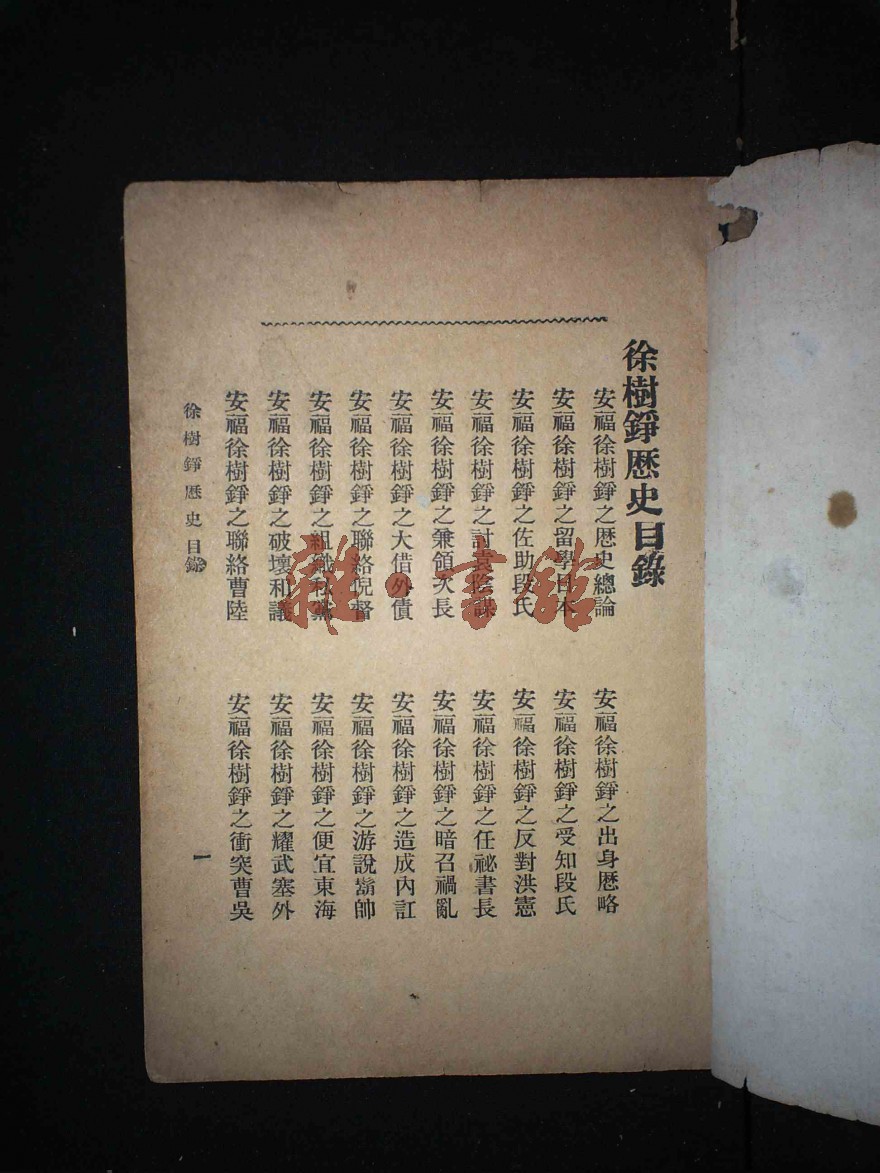 徐樹錚歷史目錄
安福徐樹錚之歷史總論
安福徐樹錚之出身歷略
安福徐樹錚之留學日本
安福徐樹錚之受知段氏
安福徐樹錚之佐助段氏
安福徐樹錚之反對洪憲
安福徐樹錚之討袁陰謀
安福徐樹錚之任祕書長
安福徐樹錚之兼領次長
安福徐樹錚之暗召禍亂
安福徐樹錚之大借外債
安福徐樹錚之造成內訌
安福徐樹錚之聯絡倪督
安福徐樹錚之游說鬍帥
安福徐樹錚之組織私黨
安福徐樹錚之便宜東海
安福徐樹錚之破壞和議
安福徐樹錚之耀武塞外
安福徐樹錚之聯絡曹陸
安福徐樹錚之衝突曹吳
徐樹錚歷史 目錄
一
雜·書館